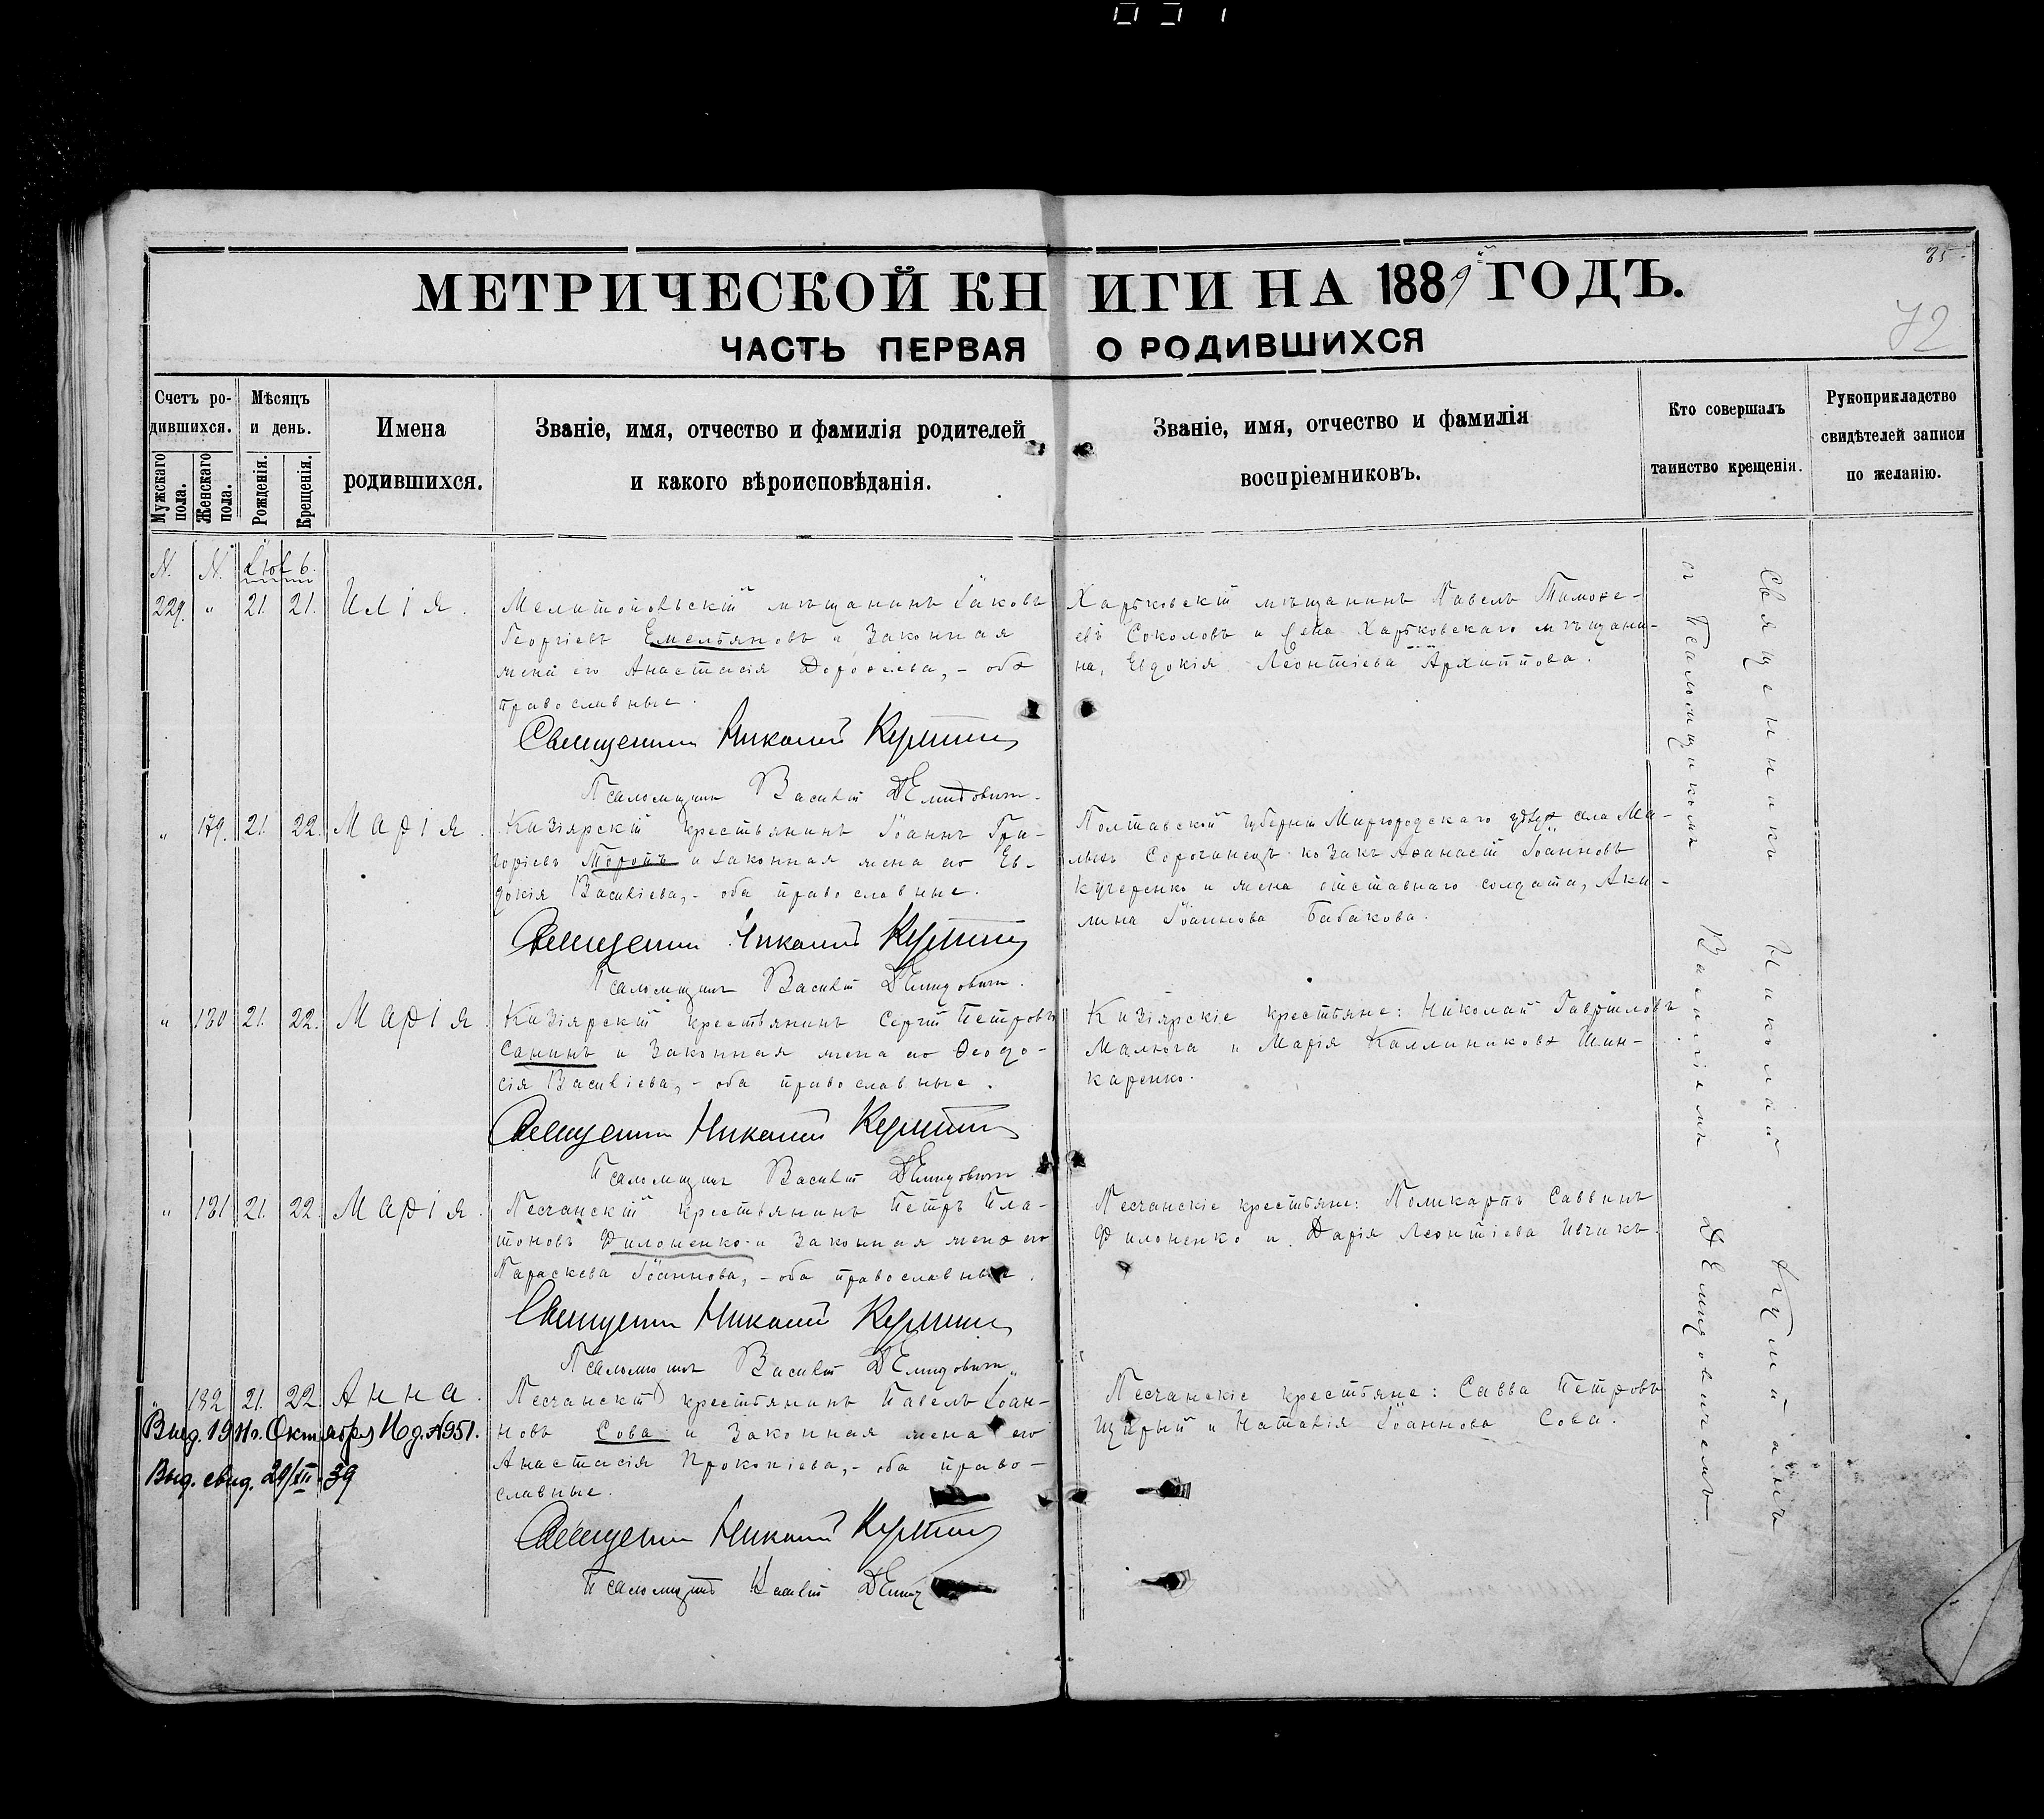 35.
МЕТРИЧЕСКОЙ КНИГИ НА 1889й ГОДЪ.
72
ЧАСТЬ ПЕРВАЯ О РОДИВШИХСЯ
Счетъ ро-
дившихся.
Мужскаго
пола.
Женскаго
пола.
Мѣсяцъ
и день.
Рожденія.
Крещенія.
Имена
родившихся.
Званіе, имя, отчество и фамилія родителей
и какого вѣроисповѣданія.
Званіе, имя, отчество и фамилія
воспріемниковъ.
Кто совершалъ
таинство крещенія.
Рукоприкладство
свидѣтелей записи
по желанію.
N. N.
229. " 21. 21. Илія.
Мелитопольскій мѣщанинъ Іаковъ
Георгіевъ Емельяновъ и законная
жена его Анастасія Дороѳеева, - оба
православные.
Священникъ Николай
Псаломщикъ Василій Демидовичъ.
Харьковскій мѣщанинъ Павелъ Тимоѳе-
евъ Соколовъ и жена Харьковскаго мѣщани-
на, Евдокія Леонтіева Архиппова.
" 179. 21. 22. Марія.
Кизіярскій крестьянинъ Іоаннъ Гри-
горіевъ Моротъ и законная жена его Ев-
докія Васильева, - оба православные.
Священникъ Николай
Псаломщикъ Василій Демидовичъ.
Полтавской губерніи Миргородскаго уѣзда села Ма-
лыхъ Сорочинецъ козакъ Аѳанасій Іоанновъ
Кучеренко и жена отставнаго солдата, Аки-
лина Іоаннова Бабакова.
" 180 21. 22. Марія.
Кизіярскій крестьянинъ Сергій Петровъ
Санинъ и законная жена его Ѳеодо-
сія Васильева, - оба православные.
Священникъ Николай
Псаломщикъ Василій Демидовичъ.
Кизіярскіе крестьяне: Николай Гавріиловъ
Малюга и Марія Каллиникова Шин-
каренко.
" 181 21. 22. Марія.
Песчанскій крестьянинъ Петръ Пла-
тоновъ Филоненко и законная жена его
Параскева Іоаннова, - оба православные.
Священникъ Николай
Псаломщикъ Василій Демидовичъ.
Песчанскіе крестьяне: Поликарпъ Саввинъ
Филоненко и Дарія Леонтіева Ивчикъ.
" 182 21. 22. Анна.
Выд. 1911г. Октября 16 д. №951.
Выд. свид. 29/XII 39
Песчанскій крестьянинъ Павелъ Іоан-
новъ Сова и законная жена его
Анастасія Прокопіева, - оба право-
славные.
Священникъ Николай
Псаломщикъ Василій
Песчанскіе крестьяне: Савва Петровъ
Щирый и Наталія Іоаннова Сова.
Священникъ Николай
съ Псаломщикомъ Василіемъ Демидовичемъ.